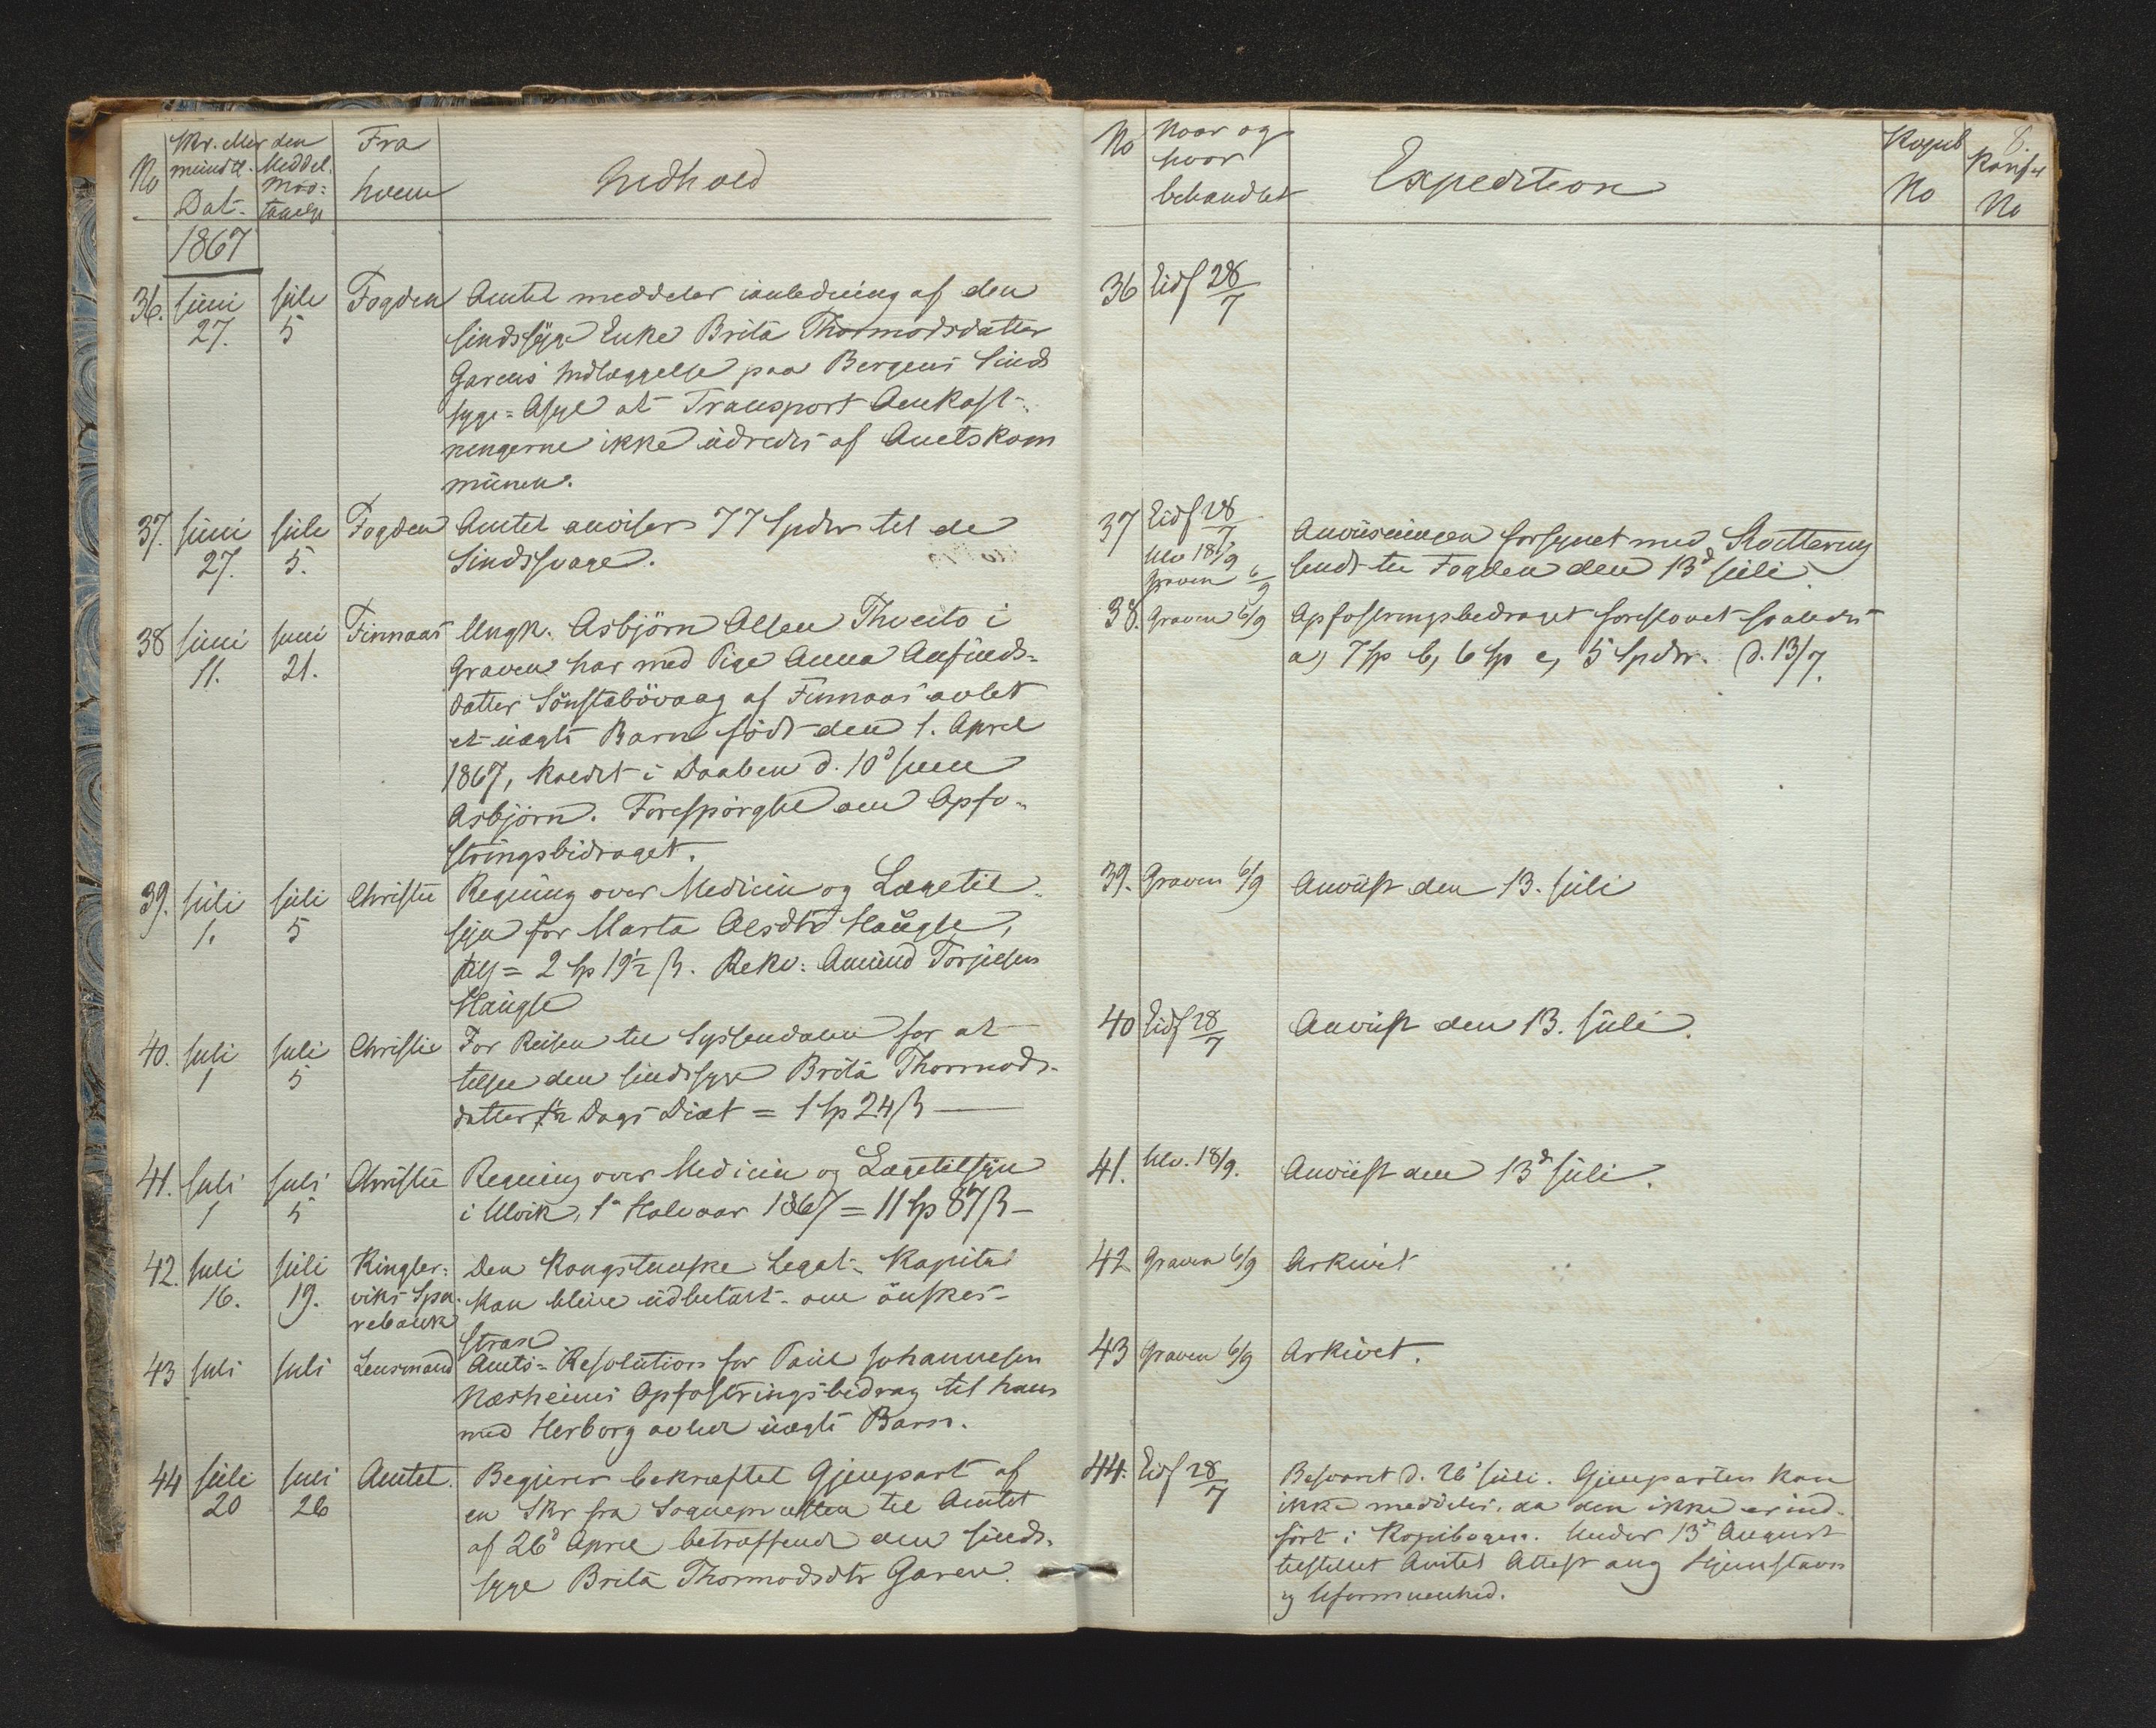 No
Skr. eller
mundtl.
Dat.
den
Meddel.
Mod-
tagelse
Fra
hvem
Indhold
1867
36. Juni 27. Juli 5 Fogden Amtet meddeler i anledning af den
sindssyge Enke Brita Thormodsdatter
Garens Indlæggelse paa Bergens Sinds
syge=Asyl at Transport Omkost-
ningerne ikke udredes af Amtskom
munen.
37. Juni 27. Juli 5. Fogden Amtet anviser 77 Spdlr til de
Sindssvage.
38 Juni 11. Juni 21. Finnaas Ungk. Asbjörn Olsen Thveito i
Graven har med Pige Anna Anfinds-
datter Sönstabövaag af Finnaas avlet
et uægte Barn födt den 1. April
1867, kaldet i Daaben d. 10d Juni
Asbjörn. Forespörgsel om Opfo-
stringsbidraget.
39. Juli 1. Juli 5 Christie Regning over Medicin og Lægetil-
syn for Marta Olsdtr Haugse,
= 2 Sp 19½ ß. Rekv: Amund Torjussen
Haugse
40. Juli 1 Juli 5 Christie For Reisen til Syssendalen for at
tilsee den sindssyge Brita Thormods-
datter ½ Dags Diæt = 1 Sp 24 ß —
41. Juli 1 Juli 5 Christie Regning over Medicin og Lægetilsyn
i Ulvik, 1e Halvaar 1867 = 11 Sp 87 ß —
42. Juli 16. Juli 19. Kingser-
viks Spa-
rebank
Den Kongstunske Legat- Kapital
kan blive udbetalt om önskes
strax
43 Juli Juli Lensmand Amts=Resolution for Poul Johannesen
Næsheims Opfostringsbidrag til hans
med Herborg avlede uægte Barn.
44 Juli 20 Juli 26 Amtet. Begjærer bekræftet Gjenpart af
en Skr fra Sognepræsten til Amtet
af 26d April betreffende den sinds-
syge Brita Thormodsdtr Garen.
No
Naar og
hvor
behandlet
Expedition
Kopieb
No
8.
No
36 Eidf 28/7
37 Eidf 28/7
Ulv 18/9
Graven 6/9
Anviisningen forsynet med Kvittering
sendt til Fogden den 13d Juli.
38. Graven 6/9 Opfostringsbedraget foreslaaet saaledes
a, 7 Sp b, 6 Sp c, 5 Spdlr. d. 13/7.
39. Graven 6/9 Anviist den 13. Juli
40 Eidf 28/7 Anviist den 13. Juli.
41. Ulv. 18/9. Anviist den 13d Juli.
42 Graven 6/9 Arkivet
43 Graven 6/9 Arkivet.
44. Eidf 28/7 Besvaret d. 26d Juli. Gjenparten kan
ikke meddeles, da den ikke er ind-
fört i Kopibogen. Under 13d August
tilstillet Amtet Attest ang Hjemstavn
og Uformuenhed.